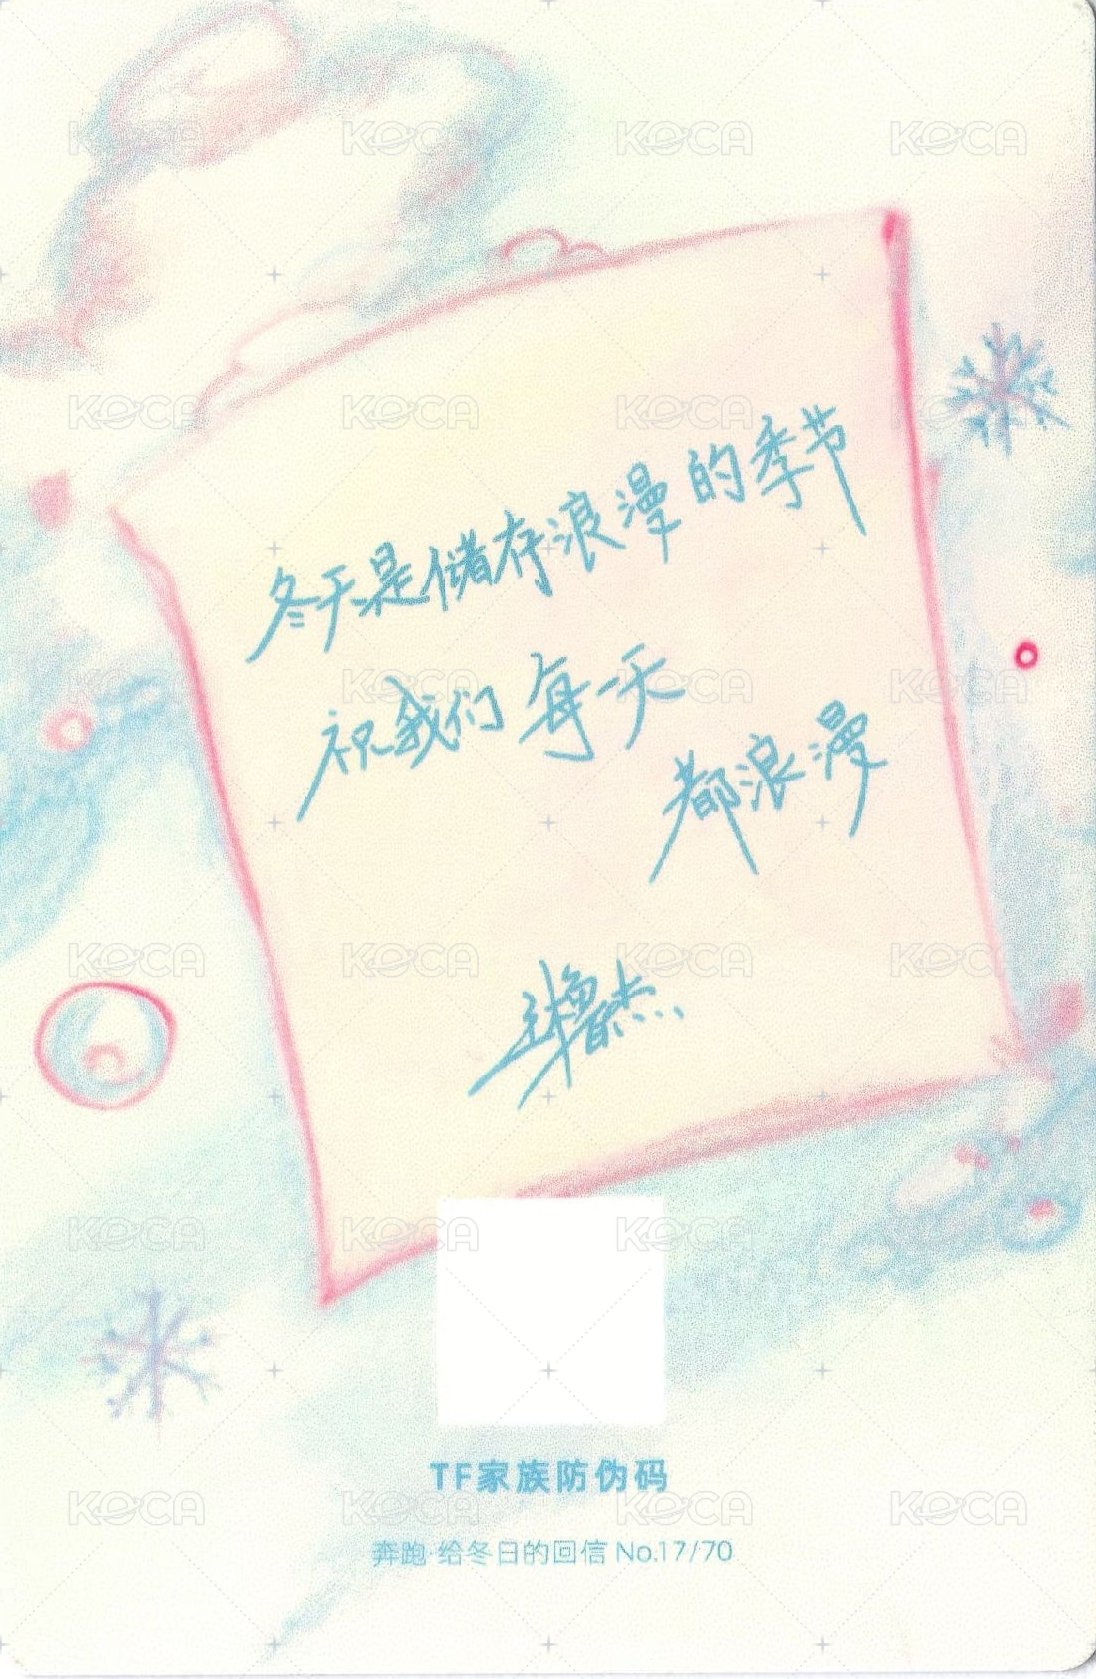 冬天是储存浪漫的季节
祝我们每一天
都浪漫
TF家族防伪码
奔跑·给冬日的回信 No.17/70
KOCA